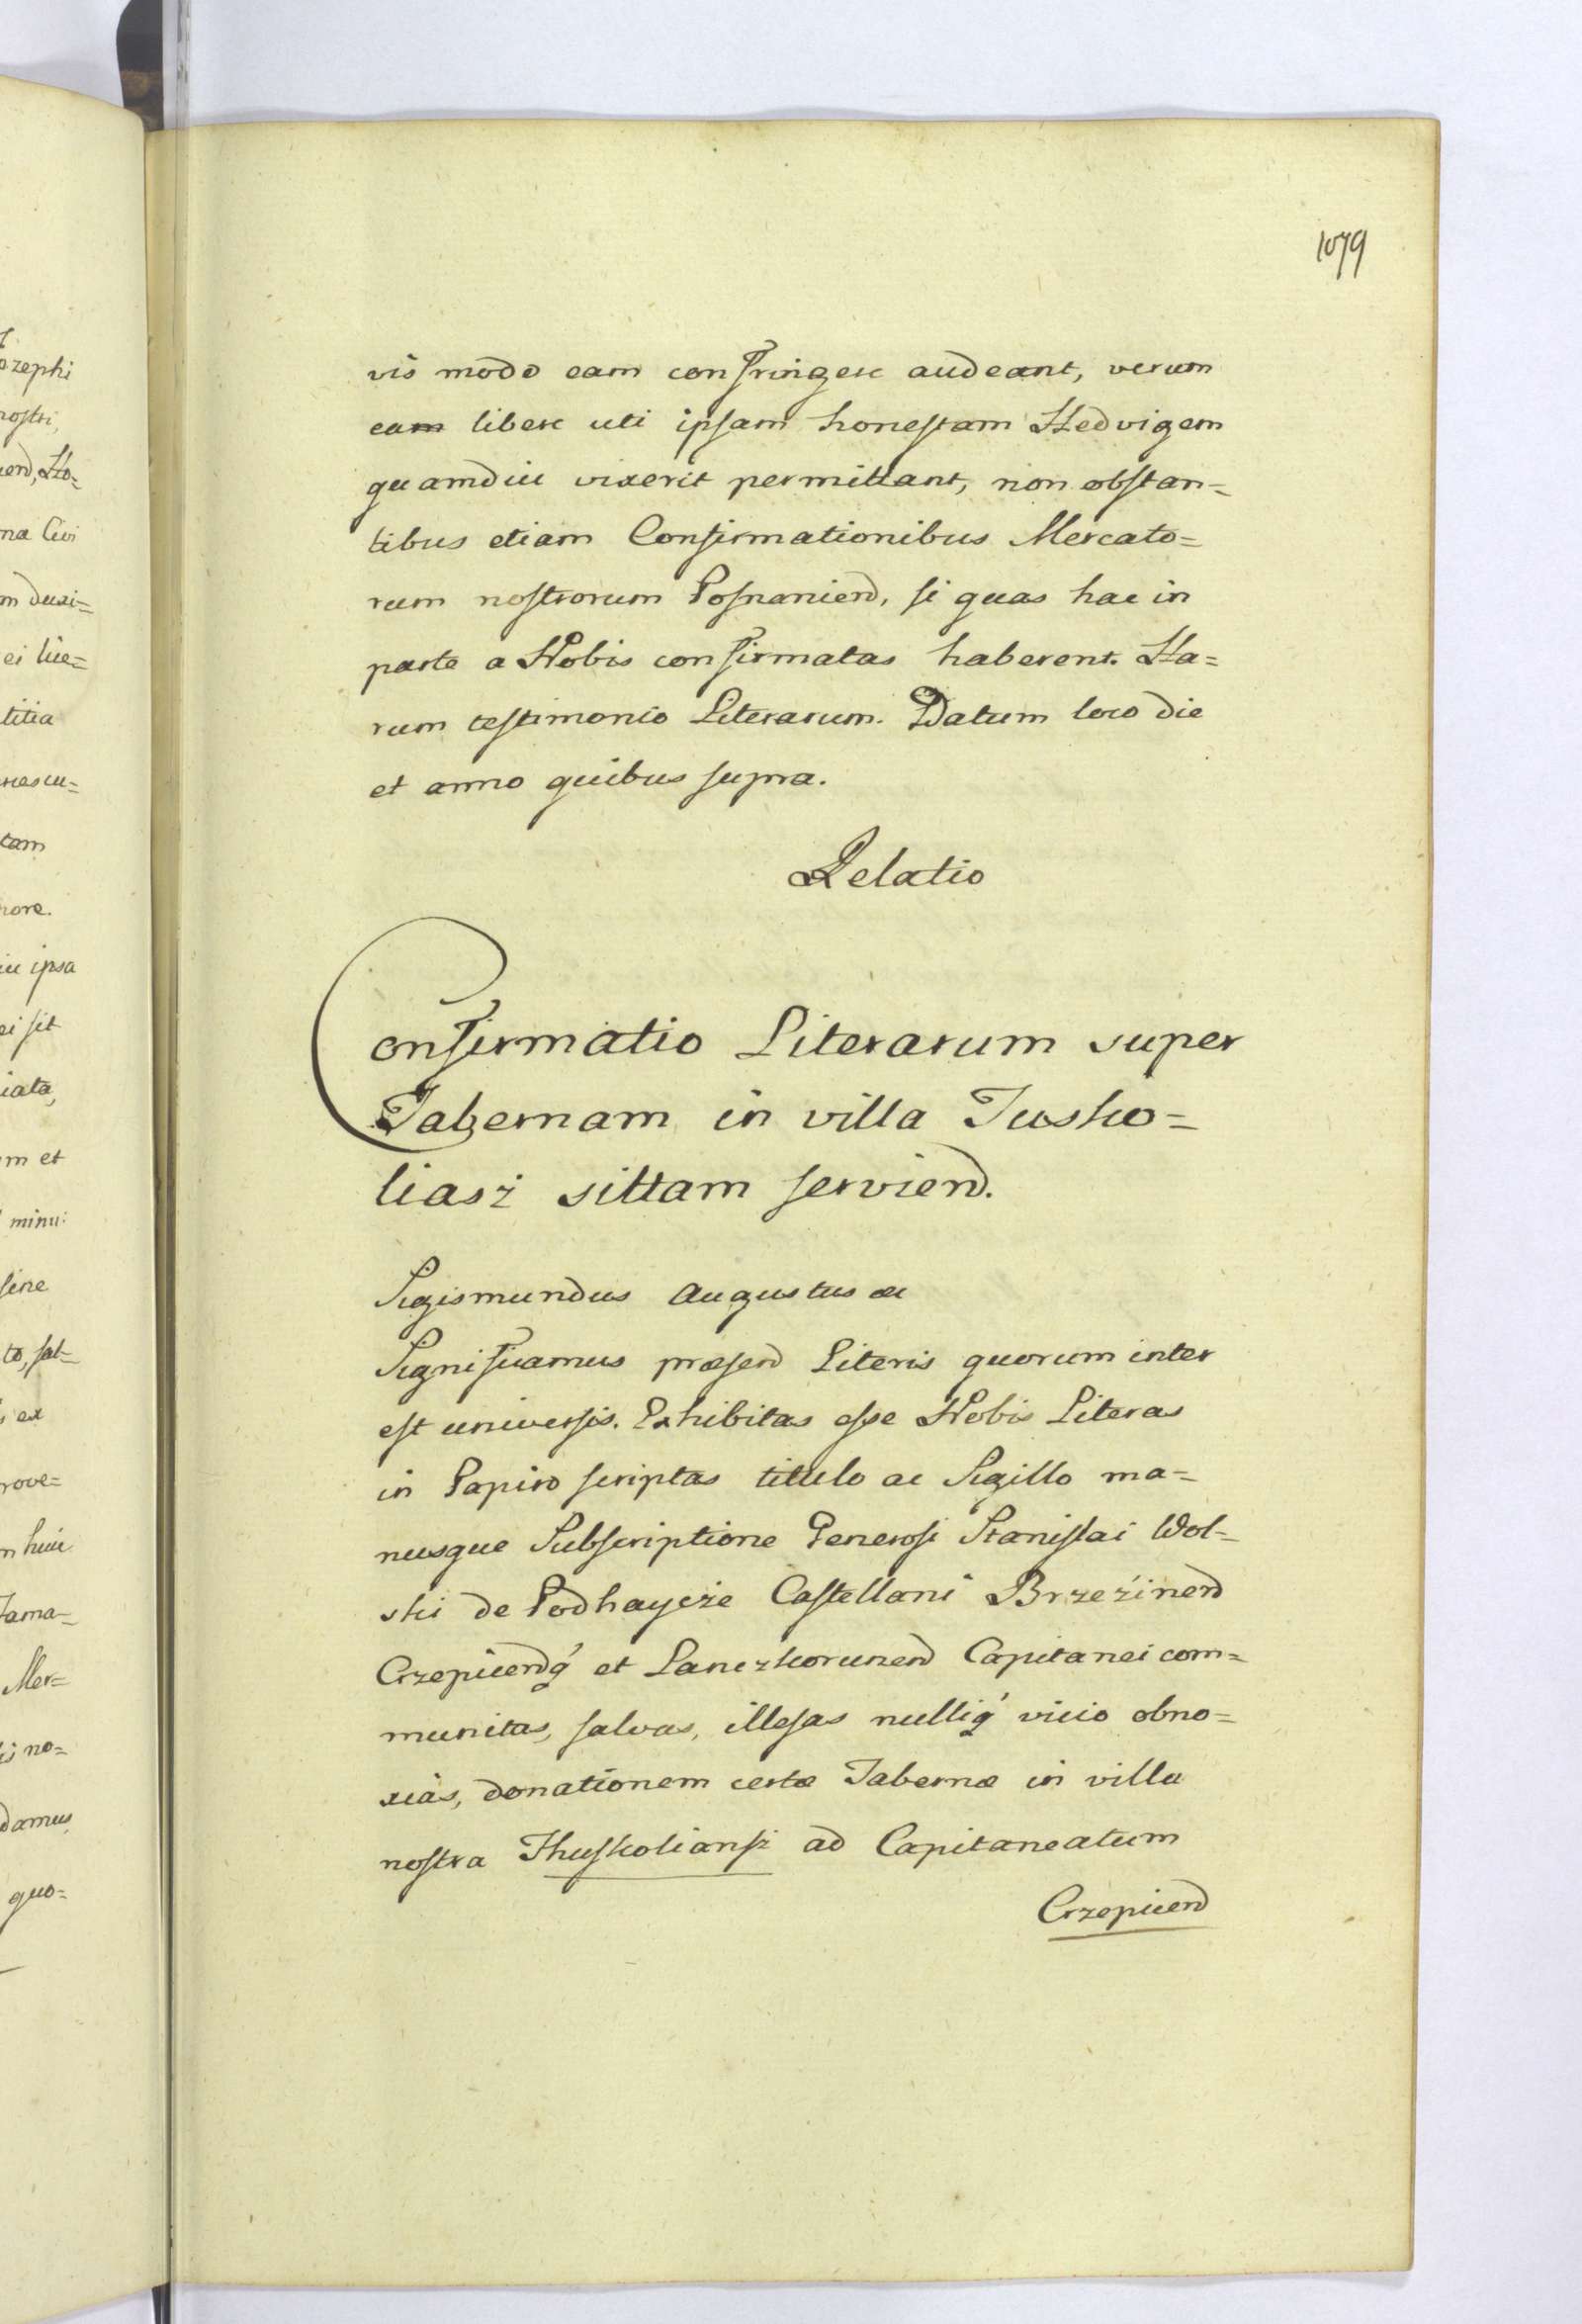 1079
vis modo eam confringere audeant, verum
eam libere uti ipsam honestam Hedvigem
quamdiu vixerit permittant, non obstan=
tibus etiam Confirmationibus Mercato=
rum nostrorum Posnaniend, si quas hac in
parte a Nobis confirmatas haberent. Ha=
rum testimonio Literarum. Datum loco die
et anno quibus supra.
Relatio
Confirmatio Literarum super
Tabernam in villa Tusko=
liasz sittam serviend.
Sigismundus Augustus &c
Significamus præsend Literis quorum inter
est universis. Exhibitas esse Nobis Literas
in Papiro scriptas titulo ac Sigillo ma=
nusque Subscriptione Generosi Stanislai Wol=
ski de Podhaycze Castellani Brzezinend
Crzepicendq' et Lanczkorunend Capitanei com=
munitas, salvas, illesas nulliq' vicio obno=
xias, donationem certæ Tabernæ in villa
nostra Thuskoliansz ad Capitaneatum
Crzepicend
ozephi
nostri,
iend, Ho=
na Civi
m duxi=
ei lice=
titia
tam
nore.
iu ipsa
ei sit
iata,
um et
minu:
sine
to, sal=
ex
rove=
n huic
Tama=
Mer=
is no=
damus
quo=